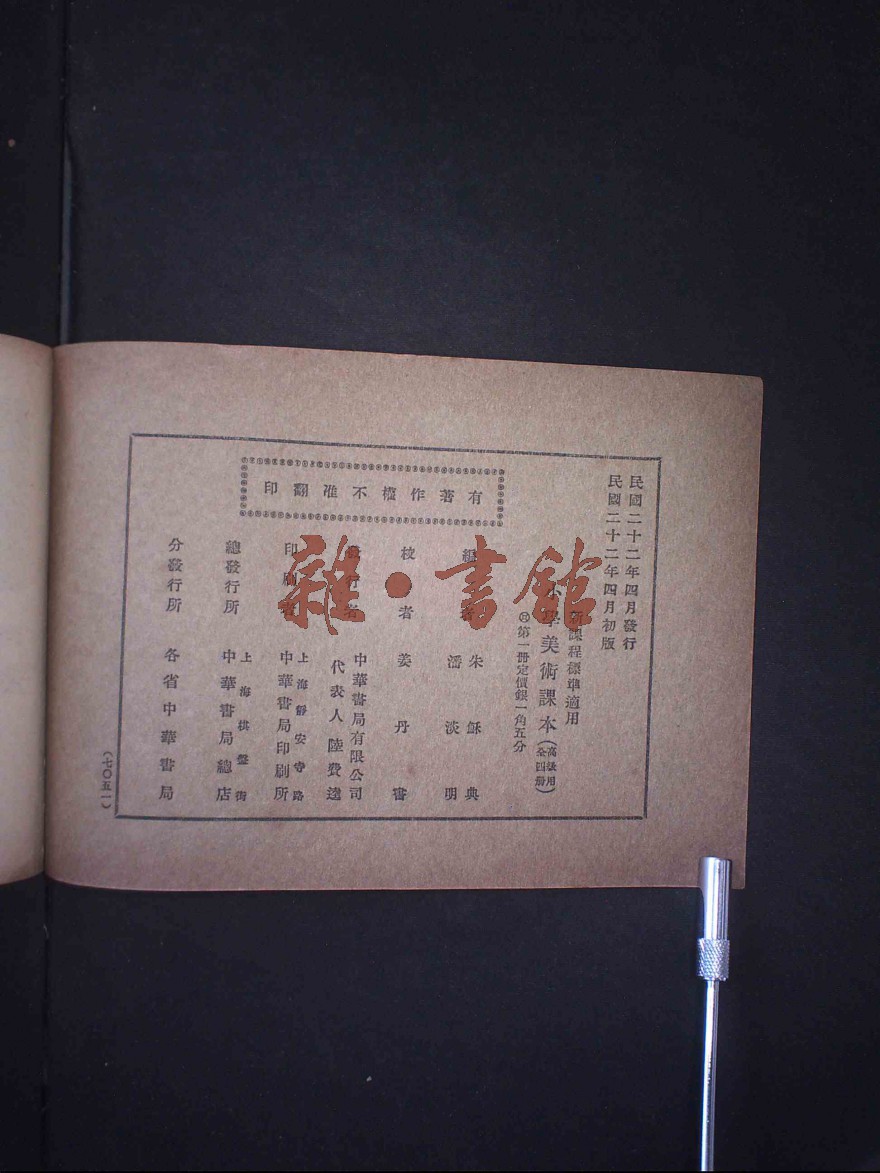 民國二十二年四月發行
民國二十二年四月初版
新課程標準適用
小學美術課本（高級用全四册）
第一冊定價銀一角五分
有著作權不准翻印
編者 朱穌典
潘淡明
校者 姜丹書
發行者 中華書局有限公司
代表人 陸費逵
印刷者 上海靜安寺路
中華書局印刷所
總發行所 上海棋盤街
中華書局總店
分發行所 各省中華書局
（七〇五一）
雜·書館